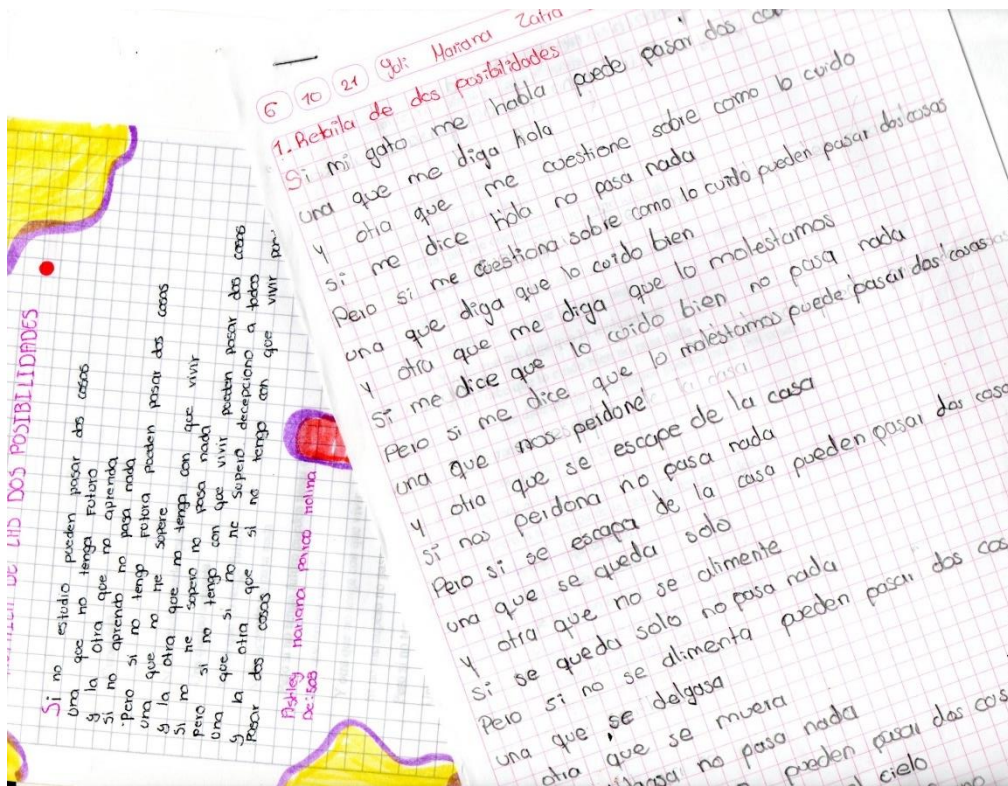 LAS DOS POSIBILIDADES
Si no estudio pueden pasar dos cosas
una que no tenga Futuro
y la otra que no aprenda
Si no aprendo no pasa nada
Pero si no tengo Futoro pueden pasar dos cosas
una que no me sopere
y la otra que no tenga con que vivir
Si no me sopero no pasa nada
pero si no tengo con que vivir pueden pasar dos cosas
una que si no me supero decepciono a todos
y la otra que si no tengo con que vivir
pasar dos cosas
Ashley mariana
De:503
6 10 21 Yoli Mariana Zafra
1. Retaila de dos posibilidades
Si mi gato me habla puede pasar dos
una que me diga hola
y otra que me cuestione sobre como lo cuido
si me dice hola no pasa nada
Pero si me cuestiona sobre como lo cuido pueden pasar dos cosas
una que diga que lo cuido bien
y otra que me diga que lo molestamos
si me dice que lo cuido bien no pasa nada
Pero si me dice que lo molestamos puede pasar dos cosas
una que nos perdone
y otra que se escape de la casa
si nos perdona no pasa nada
Pero si se escapa de la casa pueden pasar dos
una que se queda solo
y otra que no se alimente
si se queda solo no pasa nada
Pero si no se alimenta pueden pasar dos
una que se delgasa
otra que se muera
no pasa nada
pueden pasar dos
cielo